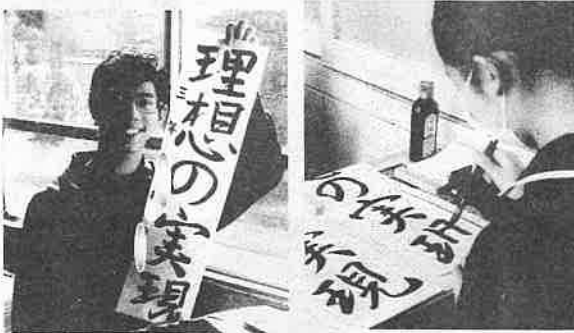 理想の実現
の実現
実現